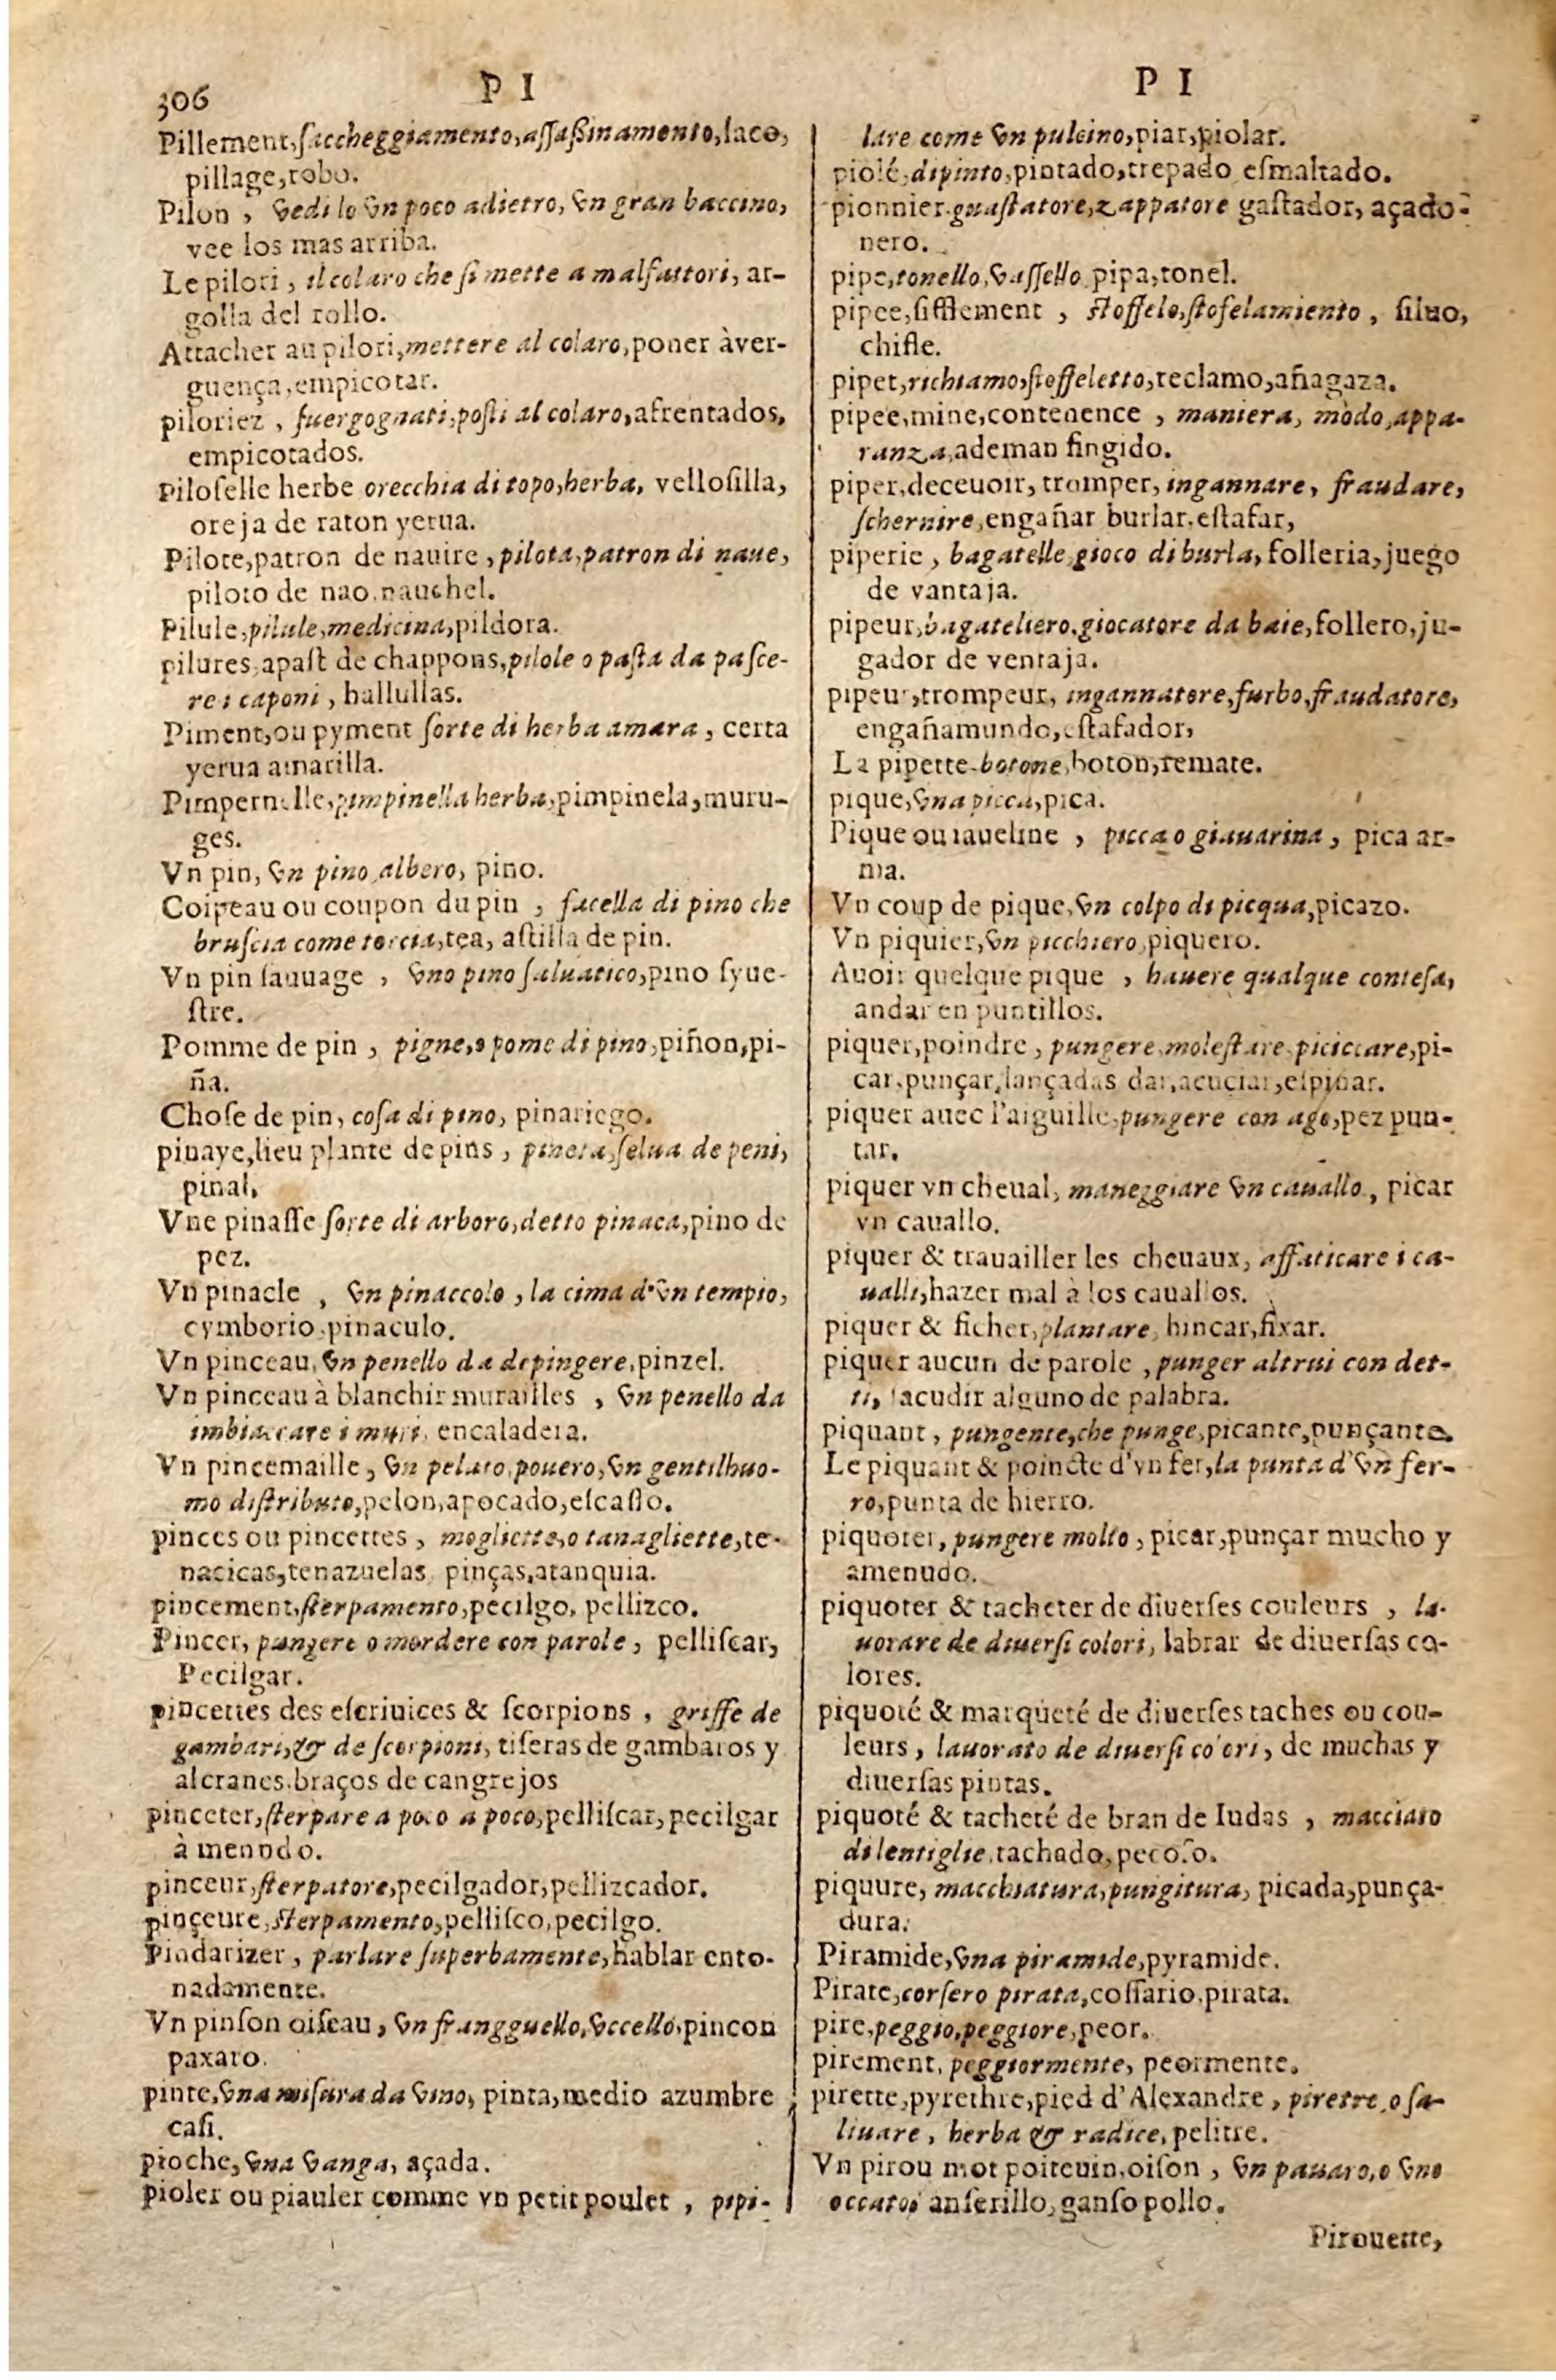 306
P I
Pillement, ſaccheggiamento, aſſaßinamento, ſaco,
pillage, robo.
Pilon, vedi lo vn poco adietro, vn gran baccino,
vee los mas arriba.
Le pilori, il colaro che ſi mette a malfattori, ar-
golla del rollo.
Attacher au pilori, mettere al colaro, poner à ver-
guença, empicotar.
piloriez, ſuergognati, poſti al colaro, afrentados,
empicotados.
Piloſelle herbe orecchia di topo, herba, velloſilla,
oreja de raton yerua.
Pilote, patron de nauire, pilota, patron di naue,
piloto de nao, nauchel.
Pilule, pilule, medicina, pildora.
pilures, apaſt de chappons, pilole o paſta da paſce-
re i caponi, hallullas.
Piment, ou pyment ſorte di herba amara, certa
yerua amarilla.
Pimpernelle, pimpinella herba, pimpinela, muru-
ges.
Vn pin, vn pino albero, pino.
Coipeau ou coupon du pin, facella di pino che
bruſcia come torcia, tea, aſtilla de pin.
Vn pin ſauuage, vno pino ſaluatico, pino ſyue-
ſtre.
Pomme de pin, pigne, o pome di pino, piñon, pi-
ña.
Choſe de pin, coſa di pino, pinariego.
pinaye, lieu plante de pins, pineta, ſelua de peni,
pinal,
Vne pinaſſe ſorte di arboro, detto pinaca, pino de
pez.
Vn pinacle, vn pinaccolo, la cima d'vn tempio,
cymborio, pinaculo.
Vn pinceau, vn penello da depingere, pinzel.
Vn pinceau à blanchir murailles, vn penello da
imbiaccare i muri, encaladera.
Vn pincemaille, vn pelato, pouero, vn gentilhuo-
mo diſtributo, pelon, apocado, eſcaſſo.
pinces ou pincettes, mogliette, o tanagliette, te-
nacicas, tenazuelas, pinças, atanquia.
pincement, ſterpamento, pecilgo, pellizco.
Pincer, pungere o mordere con parole, pelliſcar,
Pecilgar.
pincettes des eſcriuices & ſcorpions, griffe de
gambari, & de ſcorpioni, tiſeras de gambaros y
alcranes, braços de cangrejos
pinceter, ſterpare a poco a poco, pelliſcar, pecilgar
à menudo.
pinceur, ſterpatore, pecilgador, pellizcador.
pinçeure, ſterpamento, pelliſco, pecilgo.
Pindarizer, parlare ſuperbamente, hablar ento-
nadamente.
Vn pinſon oiſeau, vn frangguello, vccello, pincon
paxaro.
pinte, vna miſura da vino, pinta, medio azumbre
caſi.
pioche, vna vanga, açada.
pioler ou piauler comme vn petit poulet, pipi-
P I
lare come vn pulcino, piar, piolar.
piolé, dipinto, pintado, trepado eſmaltado.
pionnier, guaſtatore, zappatore gaſtador, açado-
nero.
pipe, tonello, vaſſello, pipa, tonel.
pipee, ſifflement, ſtoffelo, ſtofelamiento, ſiluo,
chifle.
pipet, richiamo, ſtoffeletto, reclamo, añagaza.
pipee, mine, contenence, maniera, modo, appa-
ranza, ademan fingido.
piper, deceuoir, tromper, ingannare, fraudare,
ſchernire, engañar burlar, eſtafar,
piperie, bagatelle, gioco di burla, folleria, juego
de vantaja.
pipeur, bagateliero, giocatore da baie, follero, ju-
gador de ventaja.
pipeur, trompeur, ingannatore, furbo, fraudatore,
engañamundo, eſtafador,
La pipette, botone, boton, remate.
pique, vna picca, pica.
Pique ou iaueline, picca o giauarina, pica ar-
ma.
Vn coup de pique, vn colpo di picqua, picazo.
Vn piquier, vn picchiero, piquero.
Auoir quelque pique, hauere qualque conteſa,
andar en puntillos.
piquer, poindre, pungere, moleſtare, piciccare, pi-
car, punçar, lançadas dar, acuciar, eſpinar.
piquer auec l'aiguille, pungere con ago, pez pun-
tar.
piquer vn cheual, maneggiare vn cauallo, picar
vn cauallo.
piquer & trauailler les cheuaux, affaticare i ca-
ualli, hazer mal à los cauallos.
piquer & ficher, plantare, hincar, fixar.
piquer aucun de parole, punger altrui con det-
ti, ſacudir alguno de palabra.
piquant, pungente, che punge, picante, punçante.
Le piquant & poincte d'vn fer, la punta d'vn fer-
ro, punta de hierro.
piquoter, pungere molto, picar, punçar mucho y
amenudo.
piquoter & tacheter de diuerſes couleurs, la-
uorare de diuerſi colori, labrar de diuerſas co-
lores.
piquoté & marqueté de diuerſes taches ou cou-
leurs, lauorato de diuerſi colori, de muchas y
diuerſas pintas.
piquoté & tacheté de bran de Iudas, macciato
di lentiglie, tachado, pecoſo.
piquure, macchiatura, pungitura, picada, punça-
dura.
Piramide, vna piramide, pyramide.
Pirate, corſero pirata, coſſario, pirata.
pire, peggio, peggiore, peor.
pirement, peggiormente, peormente.
pirette, pyrethre, pied d'Alexandre, piretre, o ſa-
liuare, herba & radice, pelitre.
Vn pirou mot poiteuin, oiſon, vn pauaro, o vno
occato, anſerillo, ganſo pollo.
Pirouette,